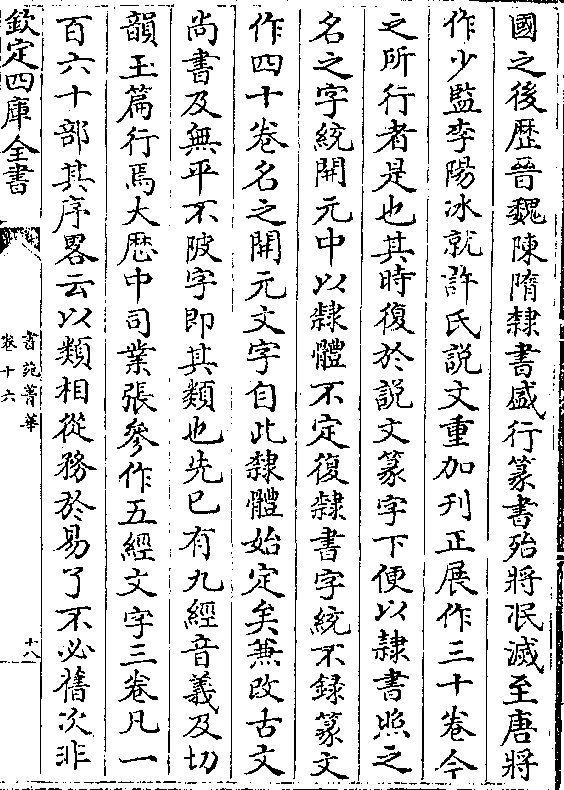 國之後歴晉魏陳隋隸書盛行篆書殆將泯滅至唐將
作少監李陽冰就許氏説文重加刋正展作三十卷今
之所行者是也其時復於説文篆字下便以隸書照之
名之字統開元中以隸體不定復隸書字統不録篆文
作四十卷名之開元文字自此隸體始定矣兼改古文
尚書及無平不陂字即其類也先已有九經音義及切
韻玉篇行焉大厯中司業張參作五經文字三卷凡一
百六十部其序畧云以類相從務於易了不必舊次非
欽定四庫全書
書苑菁華
卷十六
十八